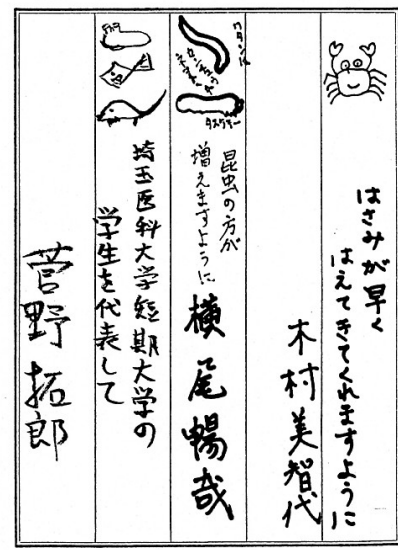 はさみが早く
はえてきてくれますように
木村美智代
昆虫の方が
増えますように
横尾暢哉
埼玉医科大学短期大学の
学生を代表して
菅野拓郎